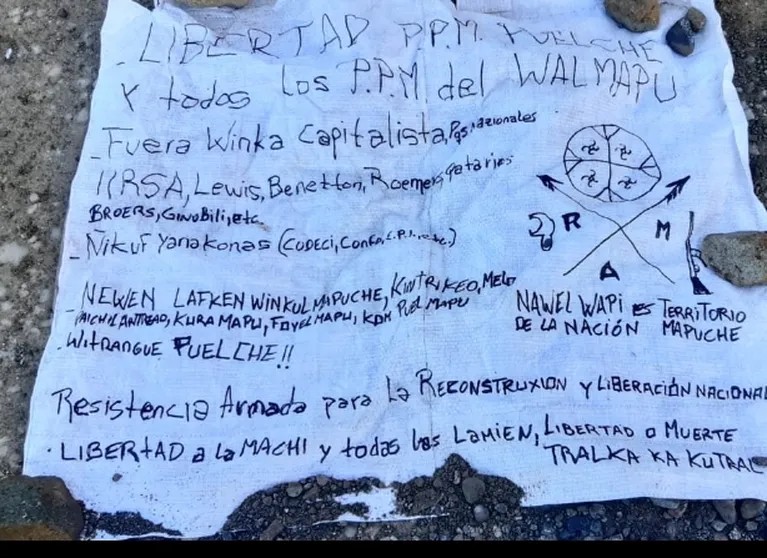 - LIBERTAD P.P.M. PUELCHE
Y todos los P.P.M del WALMAPU
- Fuera Winka Capitalista,
IIRSA, Lewis, Benetton, Roemers, qataries
BROERS, Ginobili, etc.
- Ñikuf Yanakonas (CODECI,
- NEWEN LAFKEN WINKUL MAPUCHE, KINTRIKEO,
KURA MAPU, FOYEL MAPU, KOM PUEL MAPU
- WITRANGUE PUELCHE!!
R M
A
NAWEL WAPI es TERRITORIO
DE LA NACIÓN MAPUCHE
Resistencia Armada para La RECONSTRUXION y LIBERACIÓN NACIONAL
· LIBERTAD a la MACHI y todas las LAMIEN, LIBERTAD o MUERTE
TRALKA KA KUTRAL